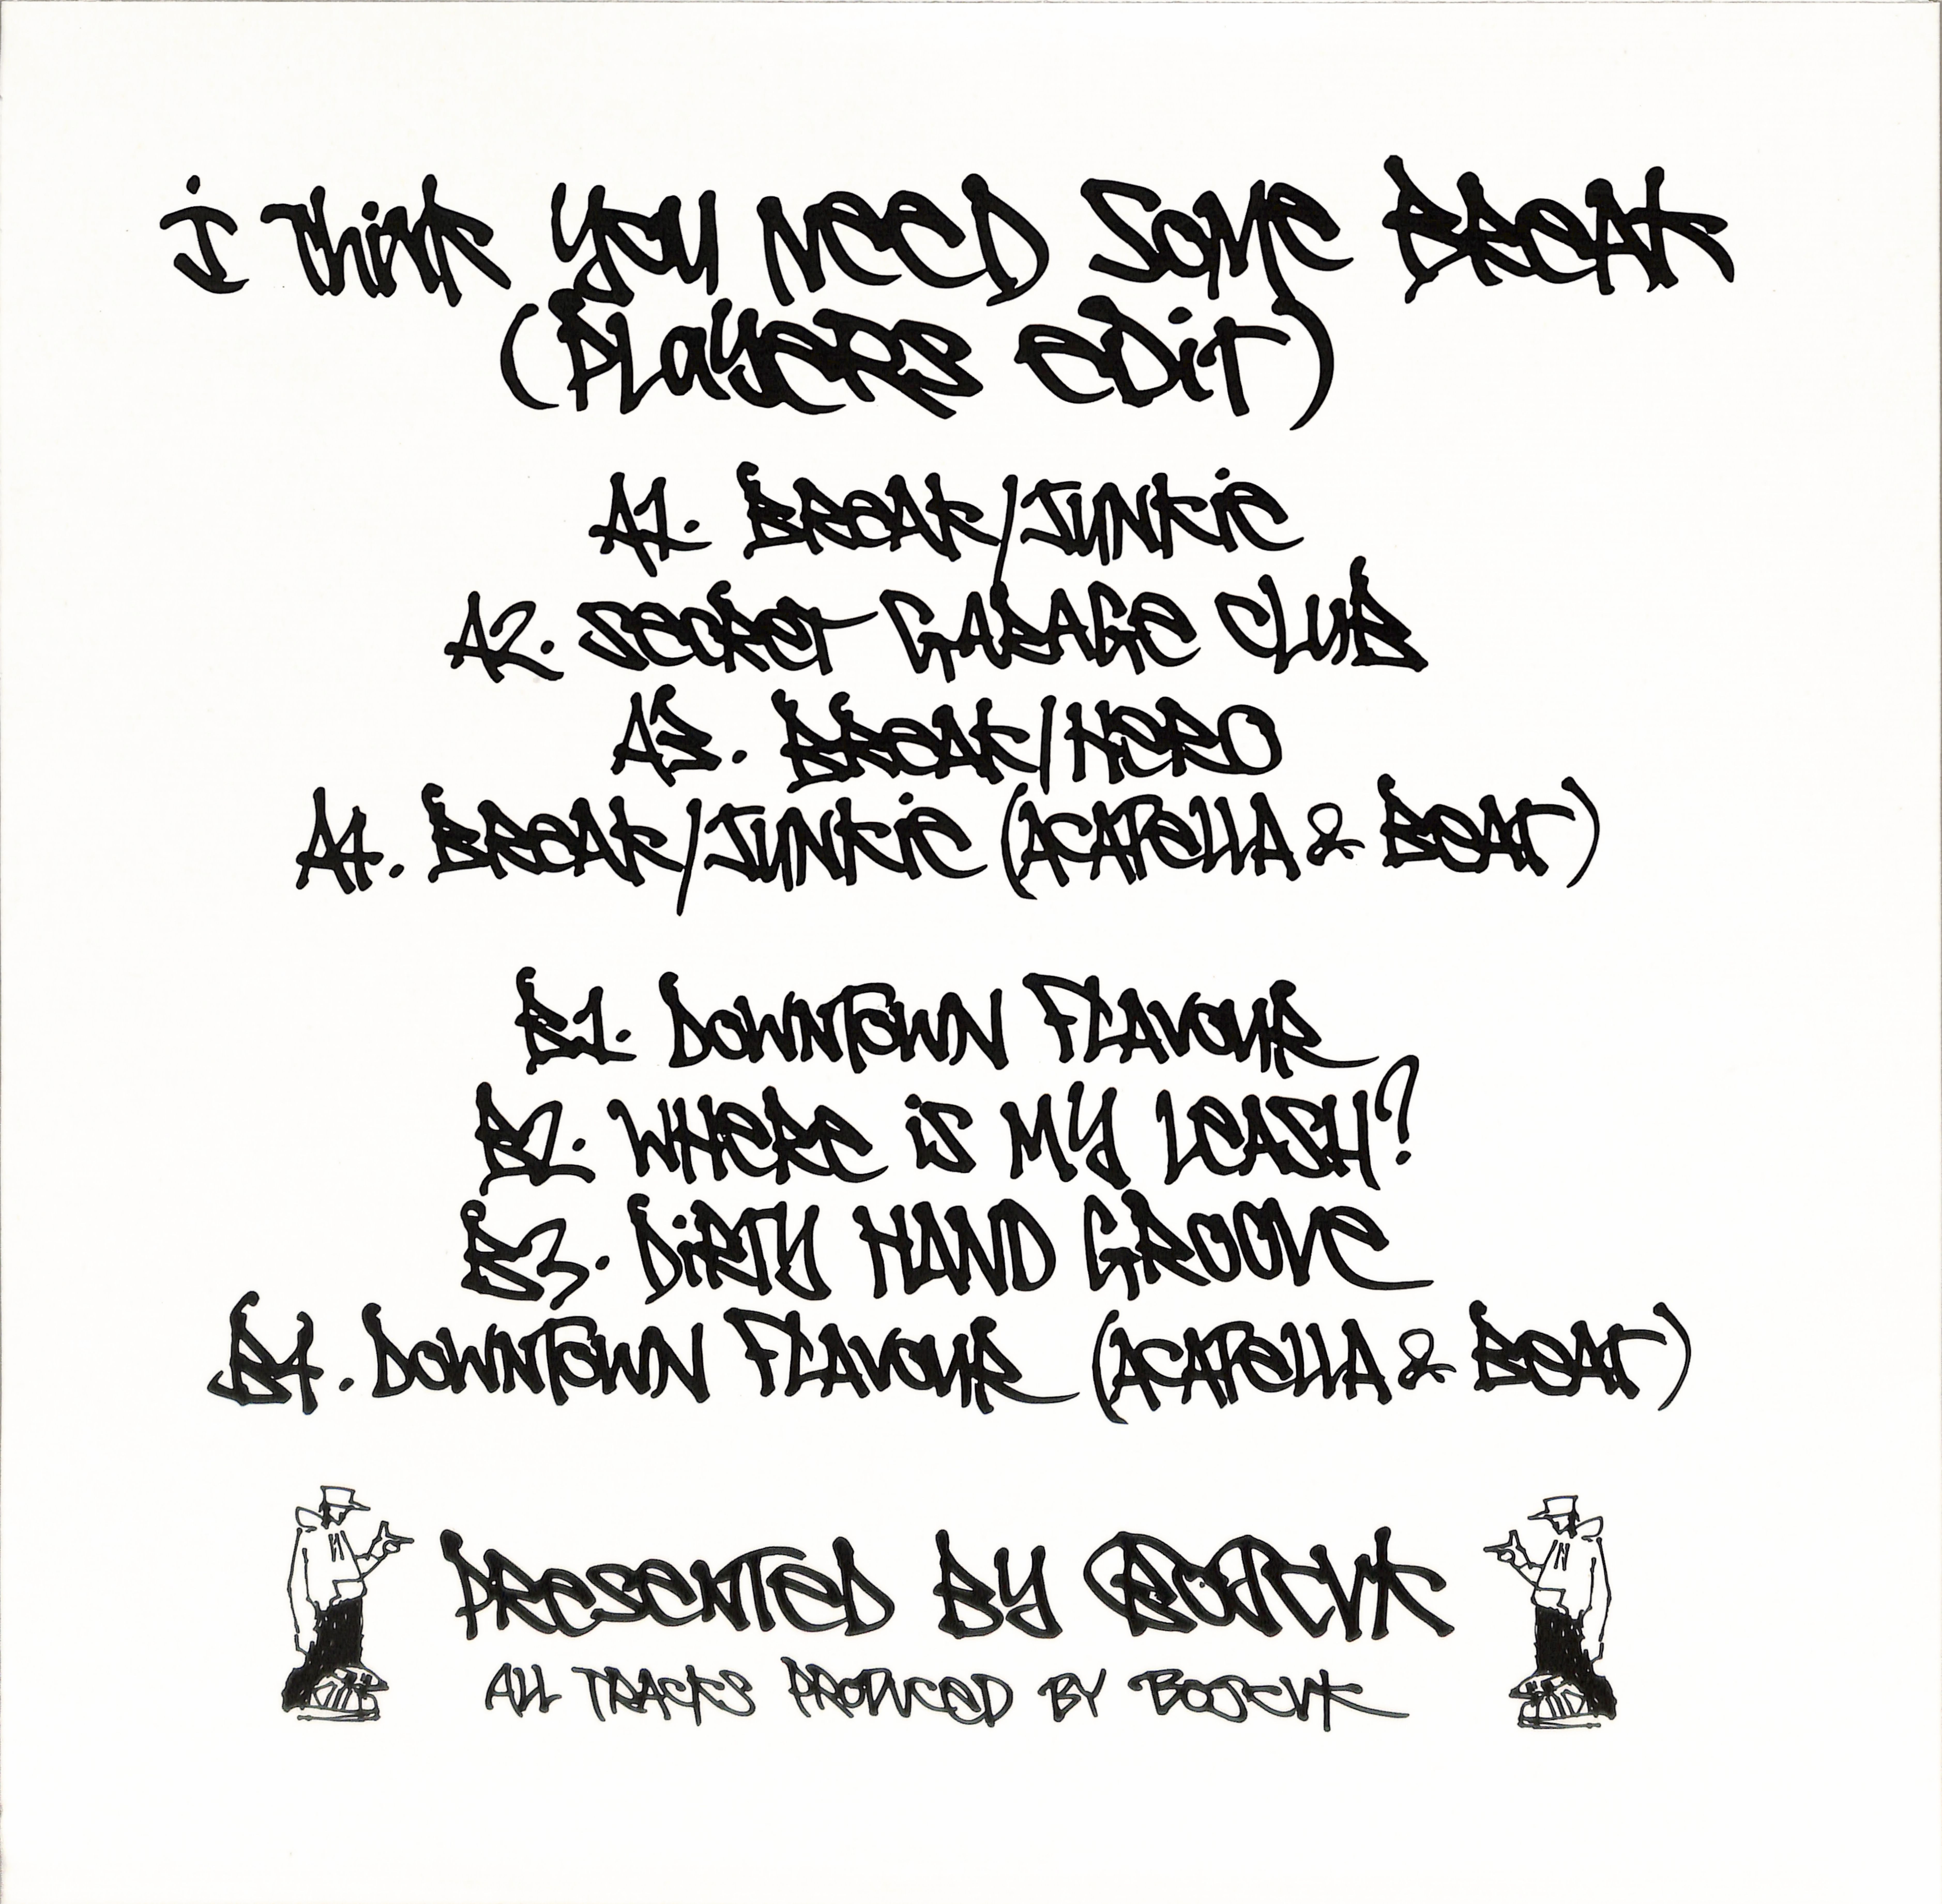 I THINK YOU NEED SOME BREAK
(PLAYERS EDIT)
A1. BREAK/JUNKIE
A2. SECRET GARAGE CLUB
A3. BREAK/HERO
A4. BREAK/JUNKIE (ACAPELLA & BEAT)
B1. DOWNTOWN FLAVOUR
B2. WHERE IS MY LEASH?
B3. DIRTY HAND GROOVE
B4. DOWNTOWN FLAVOUR (ACAPELLA & BEAT)
PRESENTED BY BOJCVK
ALL TRACKS PRODUCED BY BOJCVK